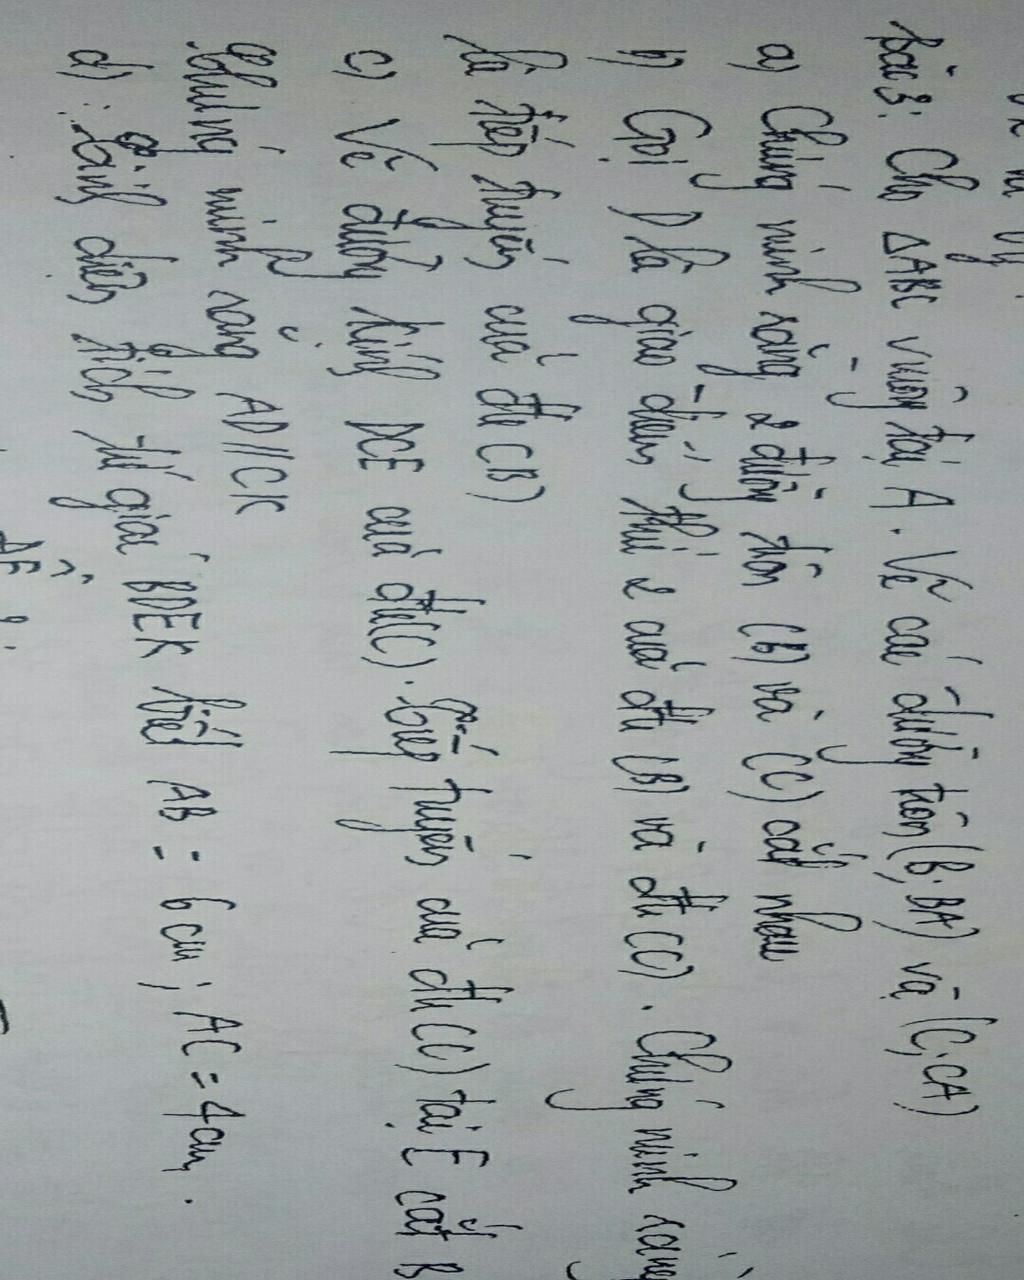 Bài 3: Cho ΔABC vuông tại A. Vẽ các đường tròn (B; BA) và (C; CA)
a) Chứng minh rằng 2 đường tròn (B) và (C) cắt nhau
b) Gọi D là giao điểm thứ 2 của đtr (B) và đtr (C). Chứng minh rằng
là tiếp tuyến của đtr (B)
c) Vẽ đường kính DCE của đtr (C). Tiếp tuyến của đtr (C) tại E cắt B
Chứng minh rằng AD // CK
d) Tính diện tích tứ giác BDEK biết AB = 6cm; AC = 4cm.